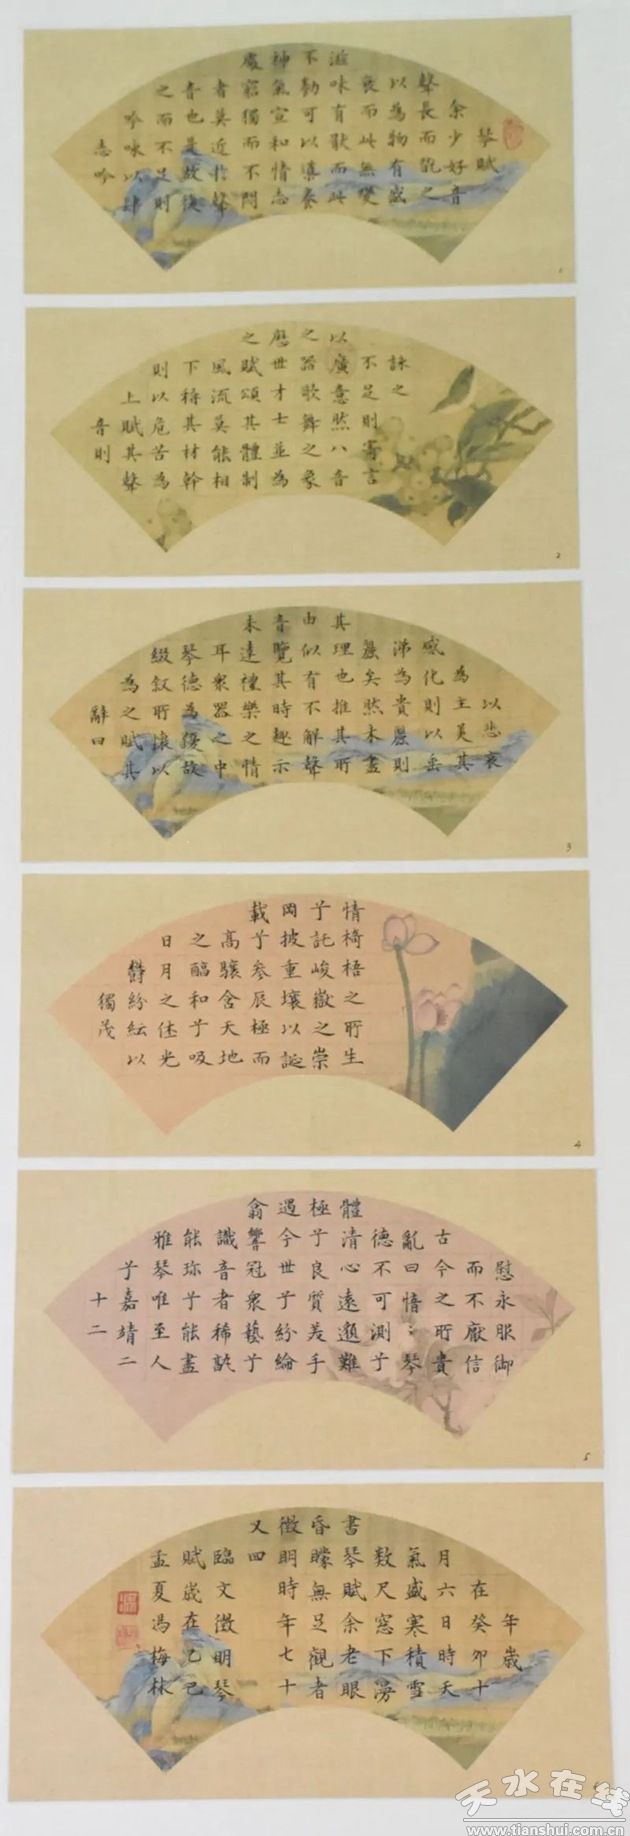 琴賦
余少好音
聲長而翫之
以為物有盛
衰而此無變
滋味有猒而此
不勌可以導養
神氣宣和情志
處窮獨而不悶
者莫近於聲
音也是故復
之而不足則
吟咏以肆
志吟
1
詠之
不足則寄言
以廣意然八音
之器歌舞之象
歷世才士並為
之賦頌其體制
風流莫能相
下稱其材幹
則以危苦為
上賦其聲
音則
2
以悲哀
為主美其
感化則以垂
涕為貴麗則
麗矣然未盡
其理也推其所
由似有不解聲
音覽其時趣示
未達禮樂之情
耳衆器之中
琴德為㝡故
綴叙所懷以
為之賦其
辭曰
3
情椅梧之所生
兮託峻嶽之崇
岡披重壤以誕
載兮參辰極而
高驤含天地
之醕和兮吸
日月之休光
欝紛紜以
獨茂
4
慰永服御
而不厭信
古今之所貴
亂曰愔〻琴
德不可測兮
體清心遠邈難
極兮良質美手
遇今世兮紛綸
翕響冠衆藝兮
識音者稀孰
能珍兮能盡
雅琴唯至人
兮嘉靖二
十二
5
年歲
在癸卯十
月六日時天
氣盛寒積雪
數尺窓下漫
書琴賦余老眼
昏矇無足觀者
徵明時年七十
又四
臨文徵明琴
賦歲在乙巳
孟夏馮梅林
6
天水在线
www.tianshui.com.cn